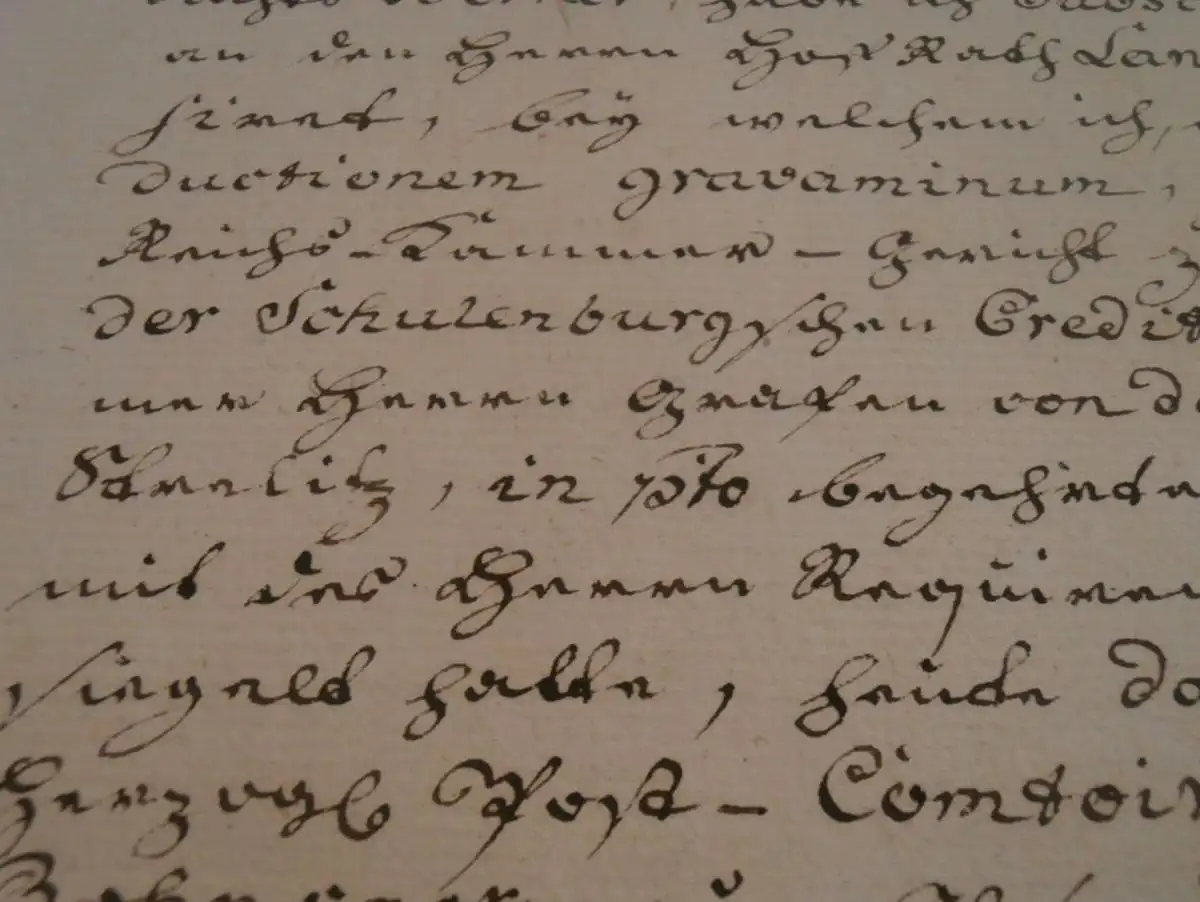 an den Herrn Hof Rath Lan
siret, bey welchem ich,
ductionem gravaminum,
Reichs-Kammer-Gericht z
der Schulenburgschen Credit
mer Herrn Grafen von d
Strelitz, in pto begehrte
mit des Herrn Requiren
siegelt hatte, heute da
Herzogl Post-Comtoir